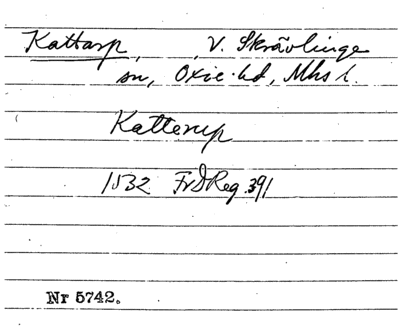 Kattarp, V. Skrävlinge
sn, Oxie hd, Mhs l.
Katterup
1532 FrDReg 391
Nr 5742.